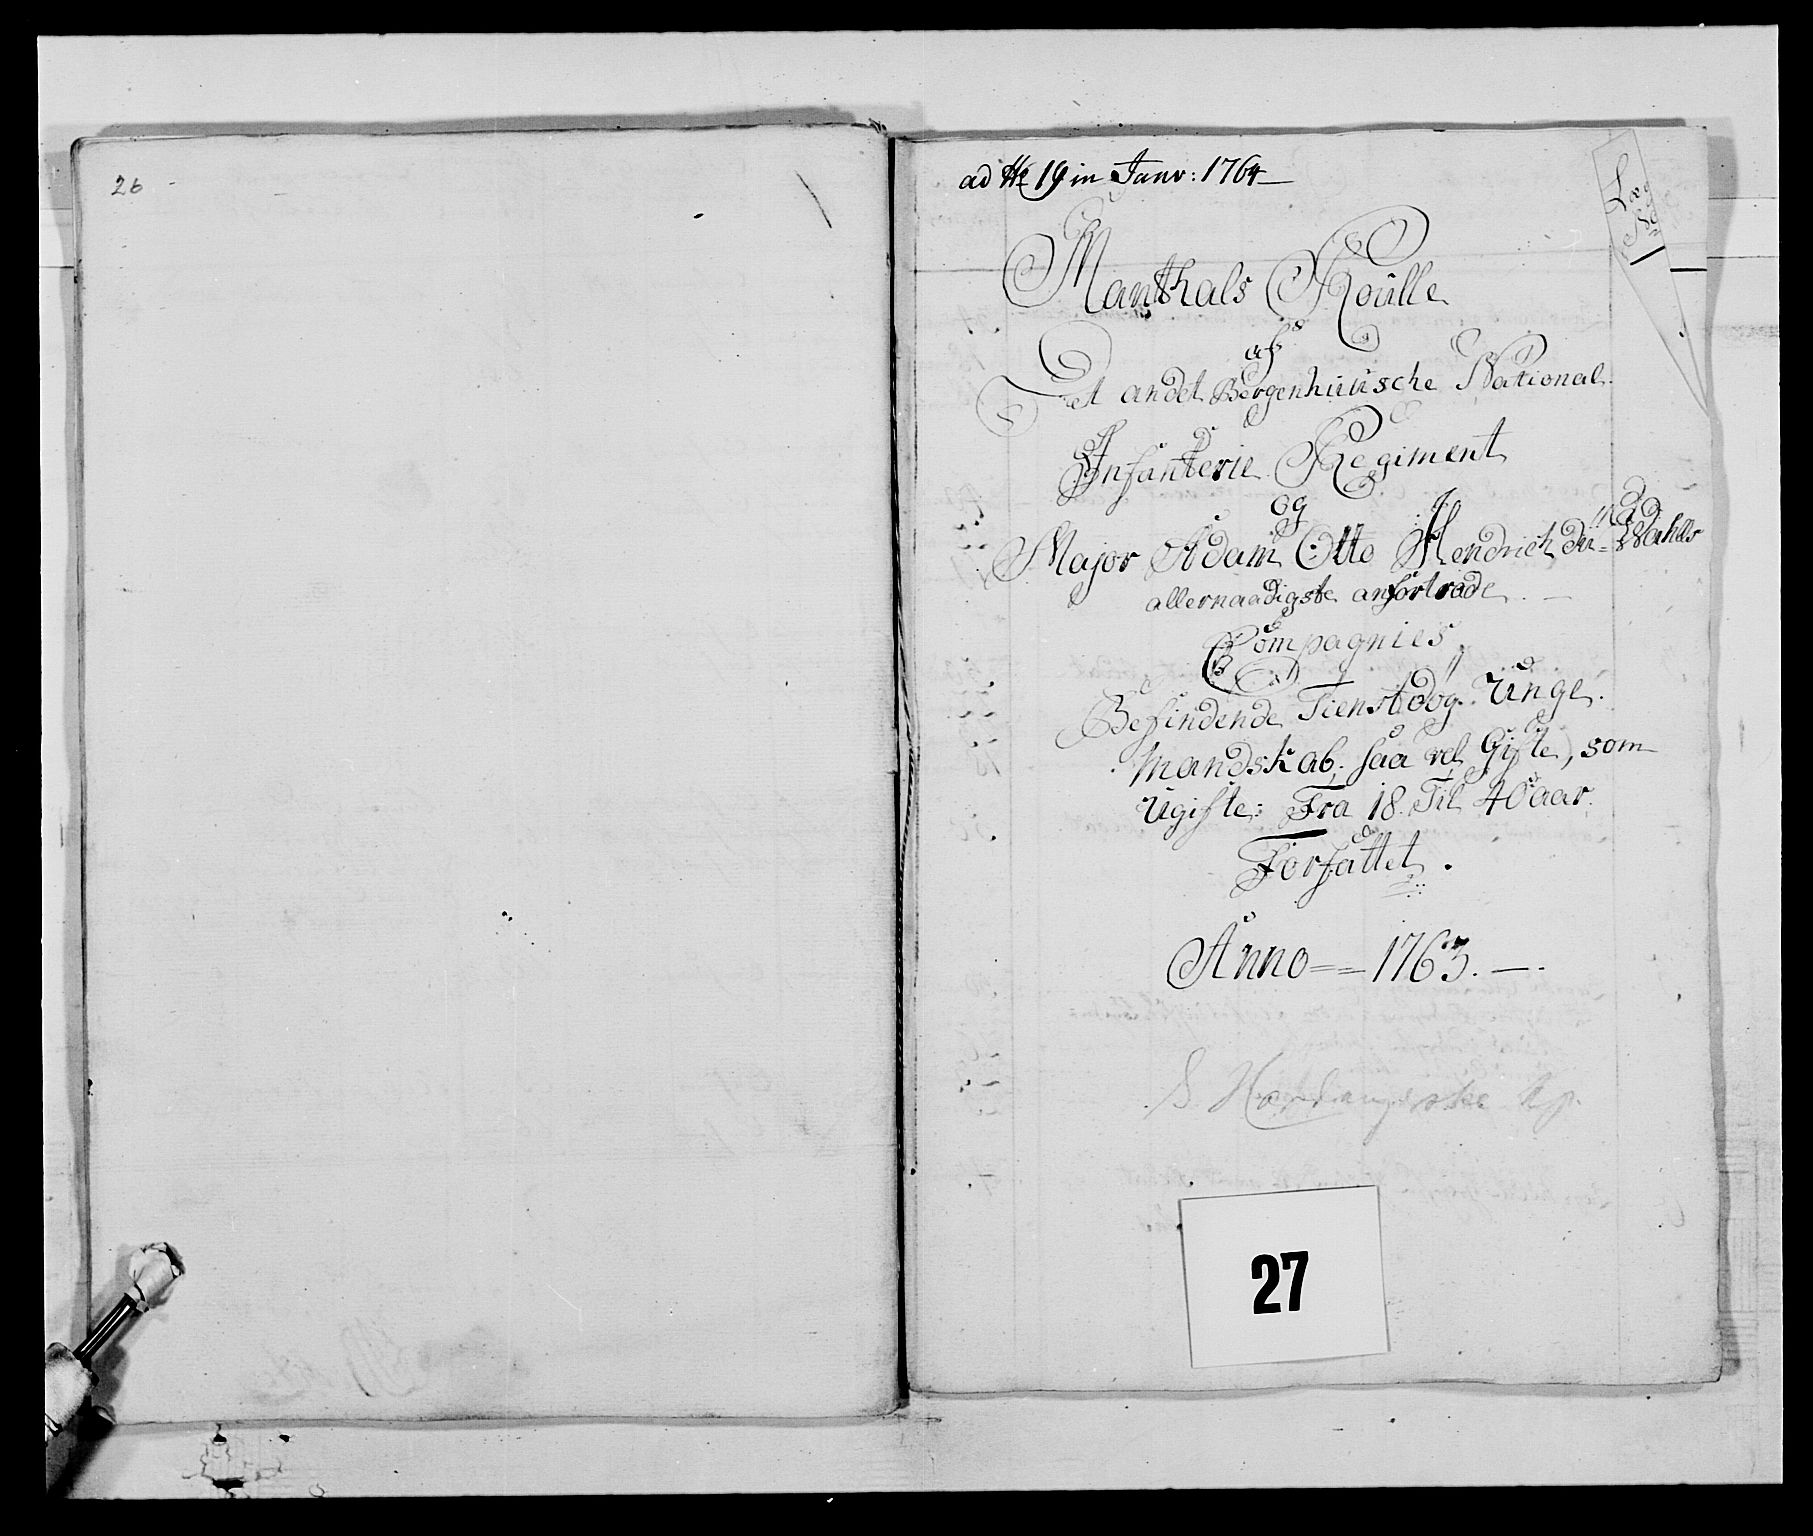 26
ad No 19 in Janv: 1764
Læg
No
Manthals Roulle
af
Det andet Bergenhuusche National
Infanterie Regiment
og
Major Adam Otto Hendrich
allernaadigste anfortrode
Compagnies
Befindende Tienstdög Unge
Mandskab, saa vel Gifte, som
Ugifte: Fra 18. Til 40 aar.
Forfattet.
Anno == 1763. —.
S. Hardangerske Kp.
27